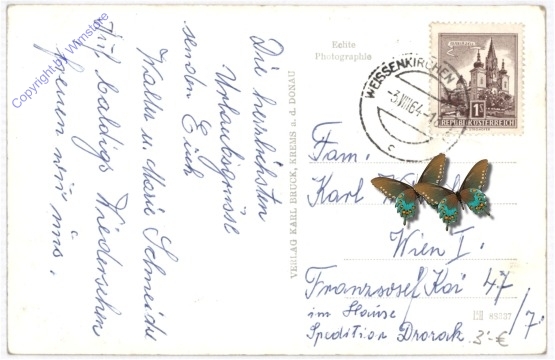 Die herzlichsten
Urlaubsgrüsse
senden Euch
Walter u. Marie Schneider
Auf baldigs Wiedersehn
freuen wir uns.
Copyright by Wimstore
VERLAG KARL BRUCK, KREMS A. D. DONAU
Echte
Photographie
WEISSENKIRCHEN
3.VIII.64
c
1S
REPUBLIK ÖSTERREICH
Fam.
Karl
Wien I.
Franzosef Kai 47/7.
im Hause
Spedition Dvorak
3'-€
88387